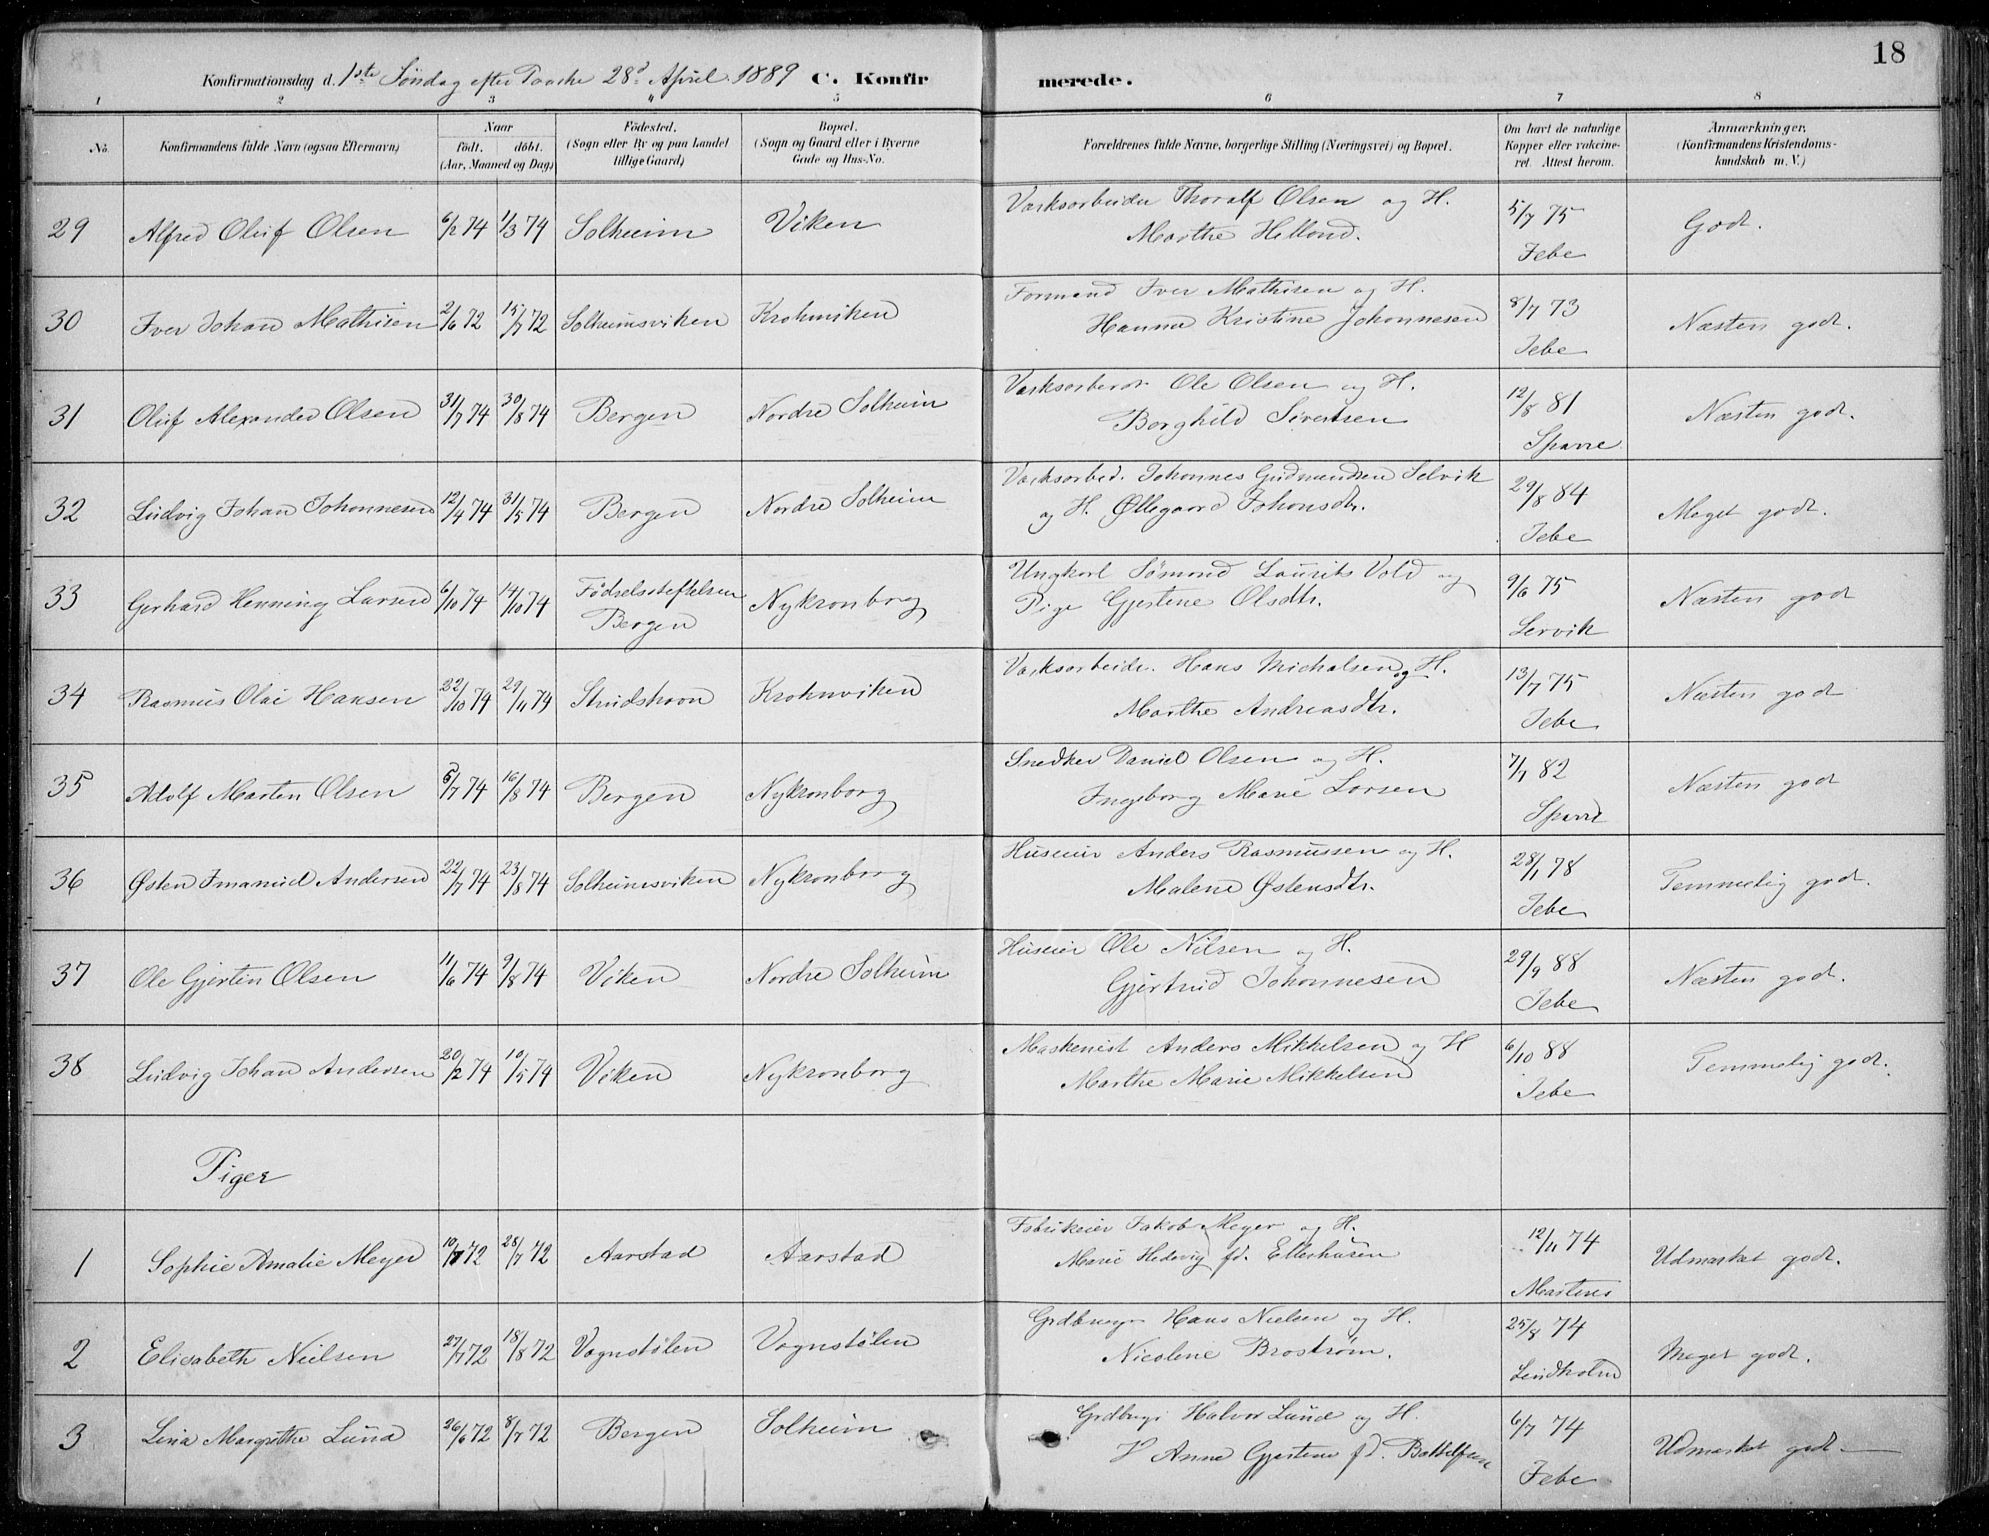 18
Konfirmationsdag d. 1ste Söndag efter Paaske 28d April 1889 C. Konfirmerede.
1 2 3 4 5 6 7 8
No. Konfirmandens fulde Navn (ogsaa Efternavn) Naar födt. döbt. (Aar, Maaned og Dag) Födested. (Sogn eller By og paa Landet tillige Gaard) Bopæl. (Sogn og Gaard eller i Byerne Gade og Hus-No. Forældrenes fulde Navne, borgerlige Stilling (Næringsvei) og Bopæl. Om havt de naturlige Kopper eller vakcineret. Attest herom. Anmærkninger. (Konfirmandens Kristendomskundskab m. V.)
29 Alfred Oluf Olsen 6/2 74 1/3 74 Solheim Viken Værksarbeider Thoralf Olsen og H. Marthe Helland. 5/7 75 Jebe Godt.
30 Iver Johan Mathisen 2/6 72 15/7 72 Solheimsviken Krohnviken Formand Iver Mathisen og H. Hanna Kristine Johannesen 8/7 73 Jebe Næsten godt.
31 Oluf Alexander Olsen 31/7 74 30/8 74 Bergen Nordre Solheim Værksarbeidr Ole Olsen og H. Borghild Sivertsen 12/8 81 Sparre Næsten godt.
32 Ludvig Johan Johannesen 12/4 74 31/5 74 Bergen Nordre Solheim Værksarbed. Johannes Gudmundsen Selvik og H. Øllegaard Johansdtr. 29/8 84 Jebe Meget godt.
33 Gerhard Henning Larsen 6/10 74 14/10 74 Fødselsstiftelsen Bergen Nykronborg Ungkarl Sømand Laurits Vold og Pige Gjertine Olsdtr. 9/6 75 Lervik Næsten godt
34 Rasmus Olai Hansen 22/10 74 29/11 74 Strudshavn Krohnviken Værksarbeidr. Hans Michalsen og H. Marthe Andreasdtr. 13/7 75 Jebe Næsten godt
35 Adolf Marten Olsen 5/7 74 16/8 74 Bergen Nykronborg Snedker Daniel Olsen og H. Ingeborg Marie Larsen 7/1 82 Sparre Næsten godt
36 Østen Imanuel Andersen 22/7 74 23/8 74 Solheimsviken Nykronborg Huseier Anders Rasmussen og H. Malene Østensdtr. 28/1 78 Jebe Temmelig godt.
37 Ole Gjertin Olsen 11/6 74 9/8 74 Viken Nordre Solheim Huseier Ole Nilsen og H. Gjertrud Johannesen 29/9 88 Jebe Næsten godt.
38 Ludvig Johan Andersen 20/2 74 10/5 74 Viken Nykronborg Maskenist Anders Mikkelsen og H Marthe Marie Mikkelsen 6/10 88 Jebe Temmelig godt.
Piger
1 Sophie Amalie Meyer 10/1 72 28/7 72 Aarstad Aarstad Fabrikeier Jakob Meyer og H. Marie Hedevig fd. Ellerhusen 12/11 74 Martens Udmærket godt.
2 Elisabeth Nielsen 27/7 72 18/8 72 Vognstølen Vognstølen Grdbruger Hans Nielsen og H. Nicoline Brostrøm. 25/8 74 Lindholm Meget godt.
3 Lina Margrethe Lund 26/6 72 8/7 72 Bergen Solheim Grdbrugr Halvor Lund og H. Anna Gjertine fd. 6/7 74 Jebe Udmærket godt.